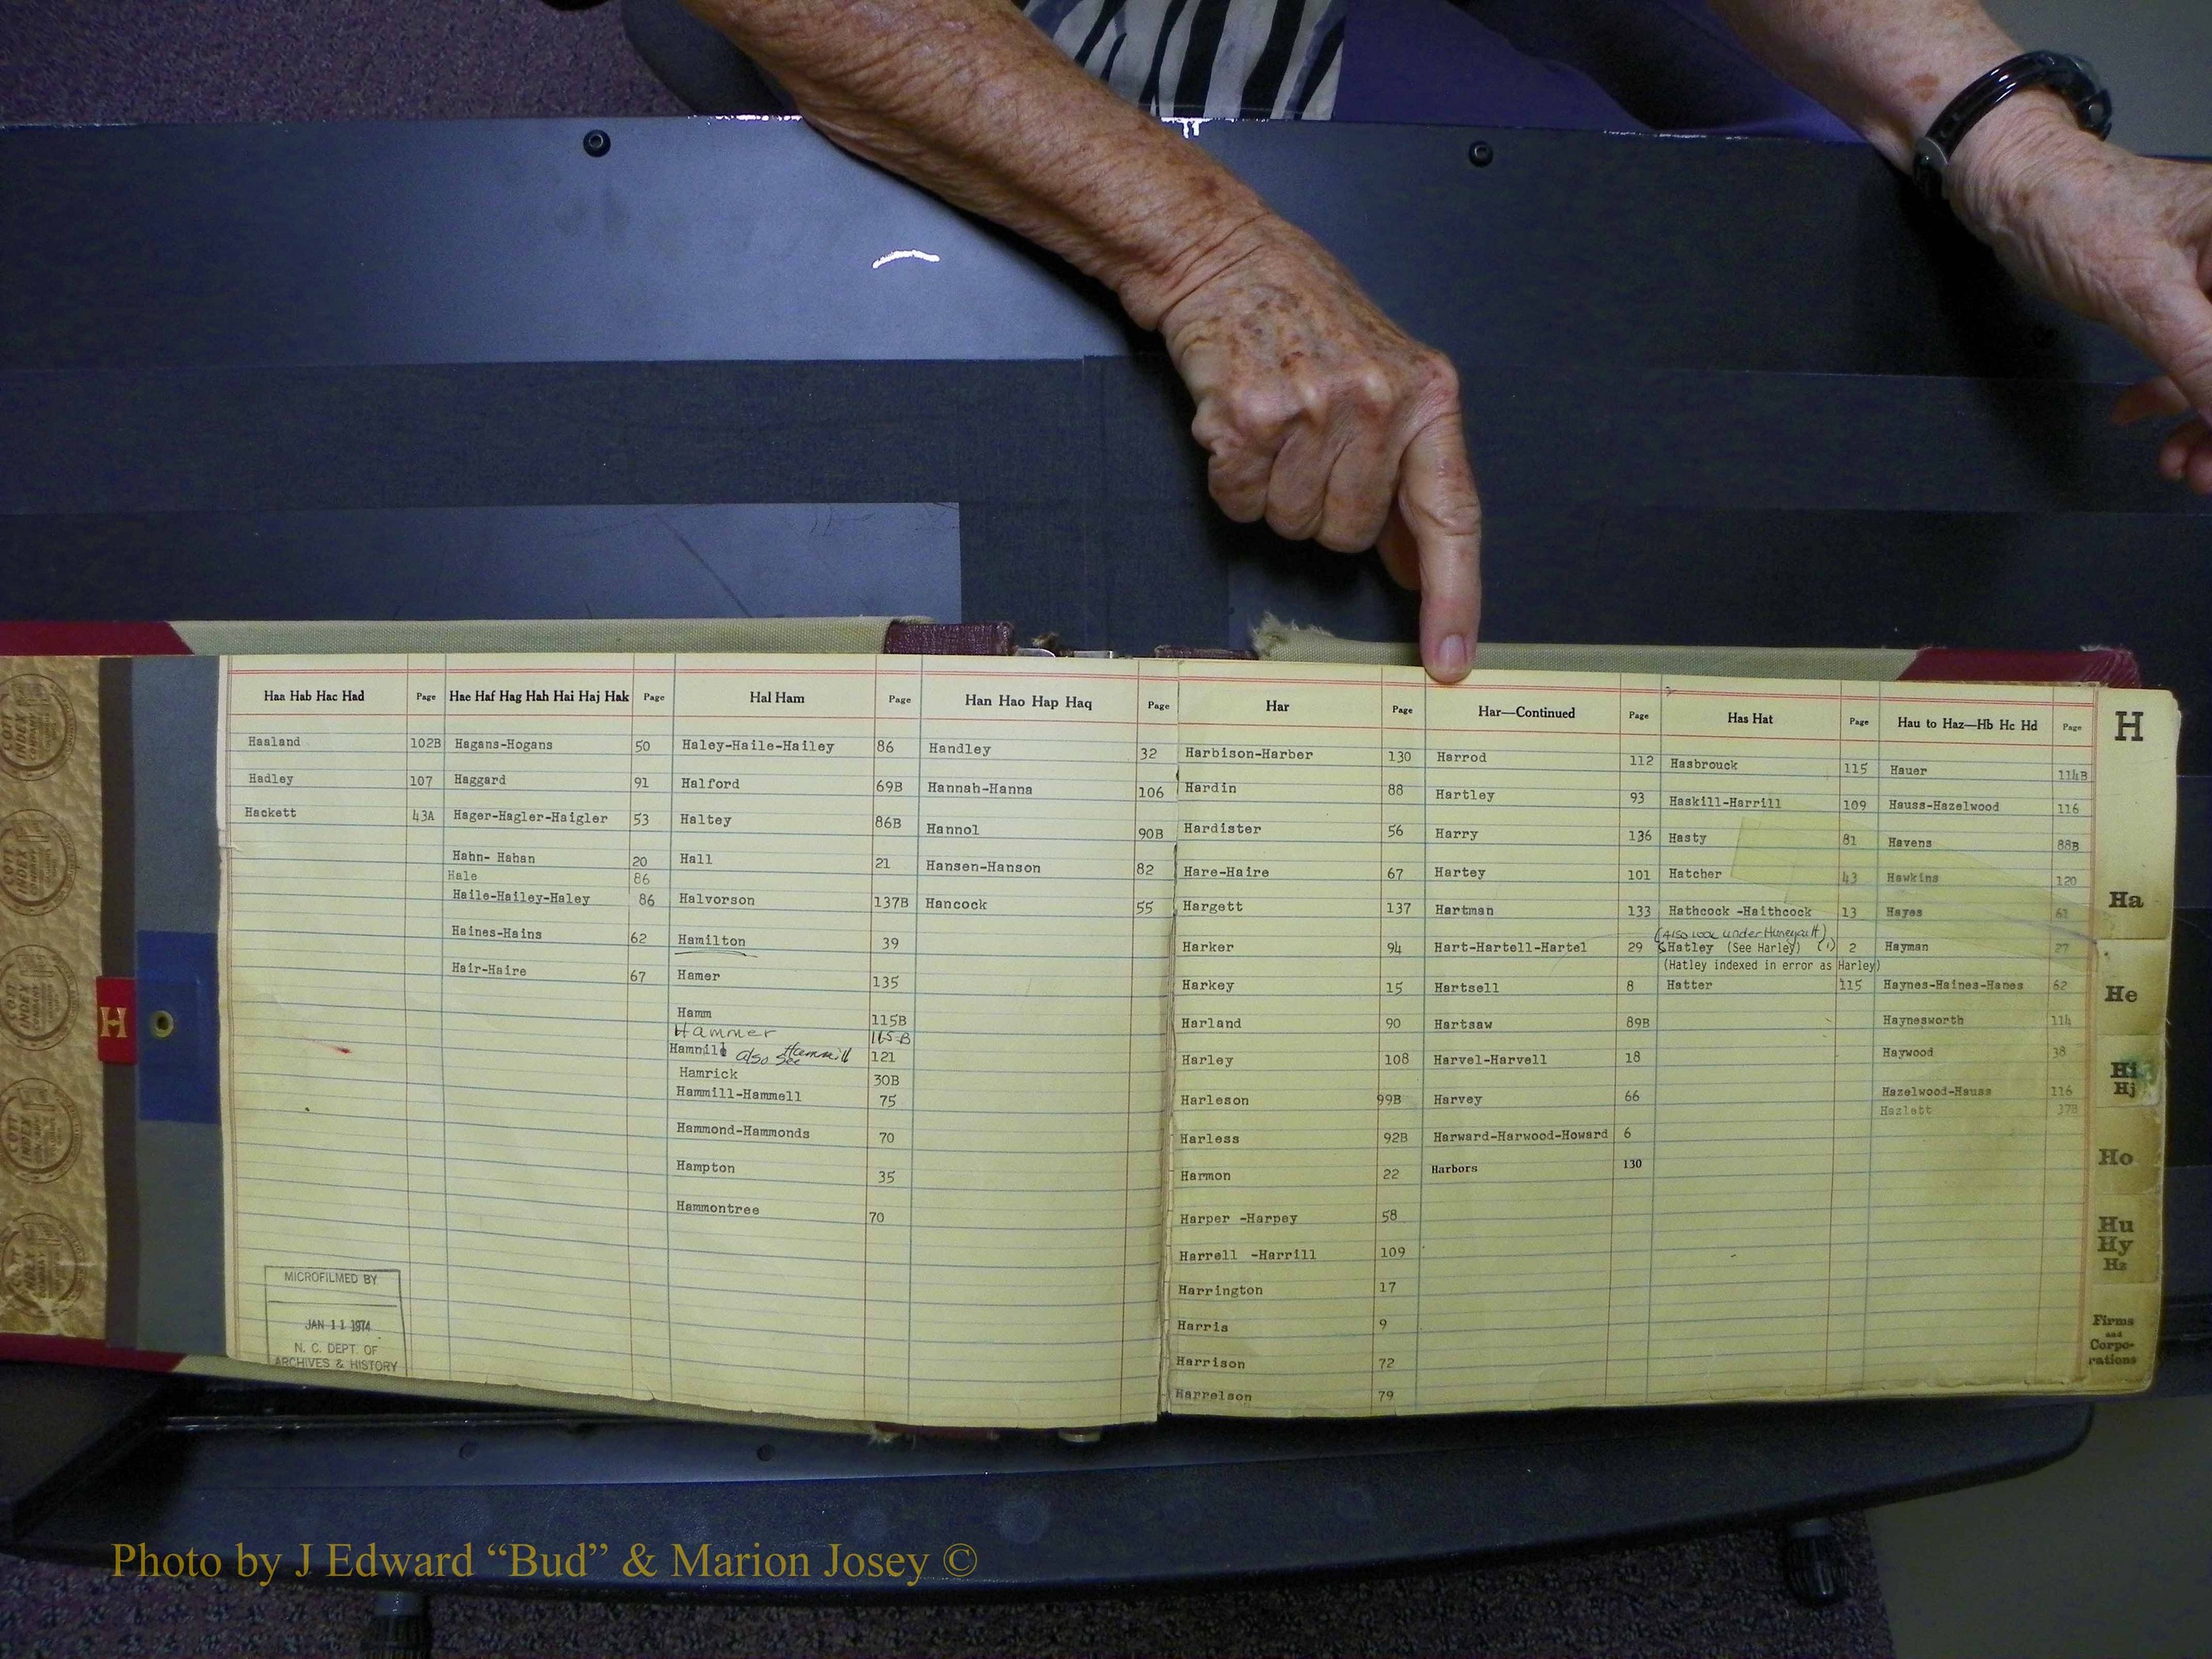 Haa Hab Hac Had
Page
Haaland 102B
Hadley 107
Hackett 43A
MICROFILMED BY
JAN 11 1974
N. C. DEPT. OF
ARCHIVES & HISTORY
Hae Haf Hag Hah Hai Haj Hak
Page
Hagans-Hogans 50
Haggard 91
Hager-Hagler-Haigler 53
Hahn- Hahan 20
Hale 86
Haile-Hailey-Haley 86
Haines-Hains 62
Hair-Haire 67
Hal Ham
Page
Haley-Haile-Hailey 86
Halford 69B
Haltey 86B
Hall 21
Halvorson 137B
Hamilton 39
Hamer 135
Hamm 115B
Hammer 165-B
also see 121
Hamrick 30B
Hammill-Hammell 75
Hammond-Hammonds 70
Hampton 35
Hammontree 70
Han Hao Hap Haq
Page
Handley 32
Hannah-Hanna 106
Hannol 90B
Hansen-Hanson 82
Hancock 55
Har
Page
Harbison-Harber 130
Hardin 88
Hardister 56
Hare-Haire 67
Hargett 137
Harker 94
Harkey 15
Harland 90
Harley 108
Harleson 99B
Harless 92B
Harmon 22
Harper -Harpey 58
Harrell -Harrill 109
Harrington 17
Harris 9
Harrison 72
Harrelson 79
Har—Continued
Page
Harrod 112
Hartley 93
Harry 136
Hartey 101
Hartman 133
Hart-Hartell-Hartel 29
Hartsell 8
Hartsaw 89B
Harvel-Harvell 18
Harvey 66
Harward-Harwood-Howard 6
Harbors 130
Has Hat
Page
Hasbrouck 115
Haskill-Harrill 109
Hasty 81
Hatcher 43
Hathcock -Haithcock 13
(Also look under Huneycutt)
Hatley (See Harley) (1) 2
(Hatley indexed in error as Harley)
Hatter 115
Hau to Haz—Hb Hc Hd
Page
Hauer 114B
Hauss-Hazelwood 116
Havens 88B
Hawkins 120
Hayes 61
Hayman 27
Haynes-Haines-Hanes 62
Haynesworth 114
Haywood 38
Hazelwood-Hauss 116
Hazlett 37B
H
Ha
He
Hi
Hj
Ho
Hu
Hy
Hz
Firms
and
Corpo-
rations
H
COTT
INDEX
COMPANY
Photo by J Edward “Bud” & Marion Josey ©